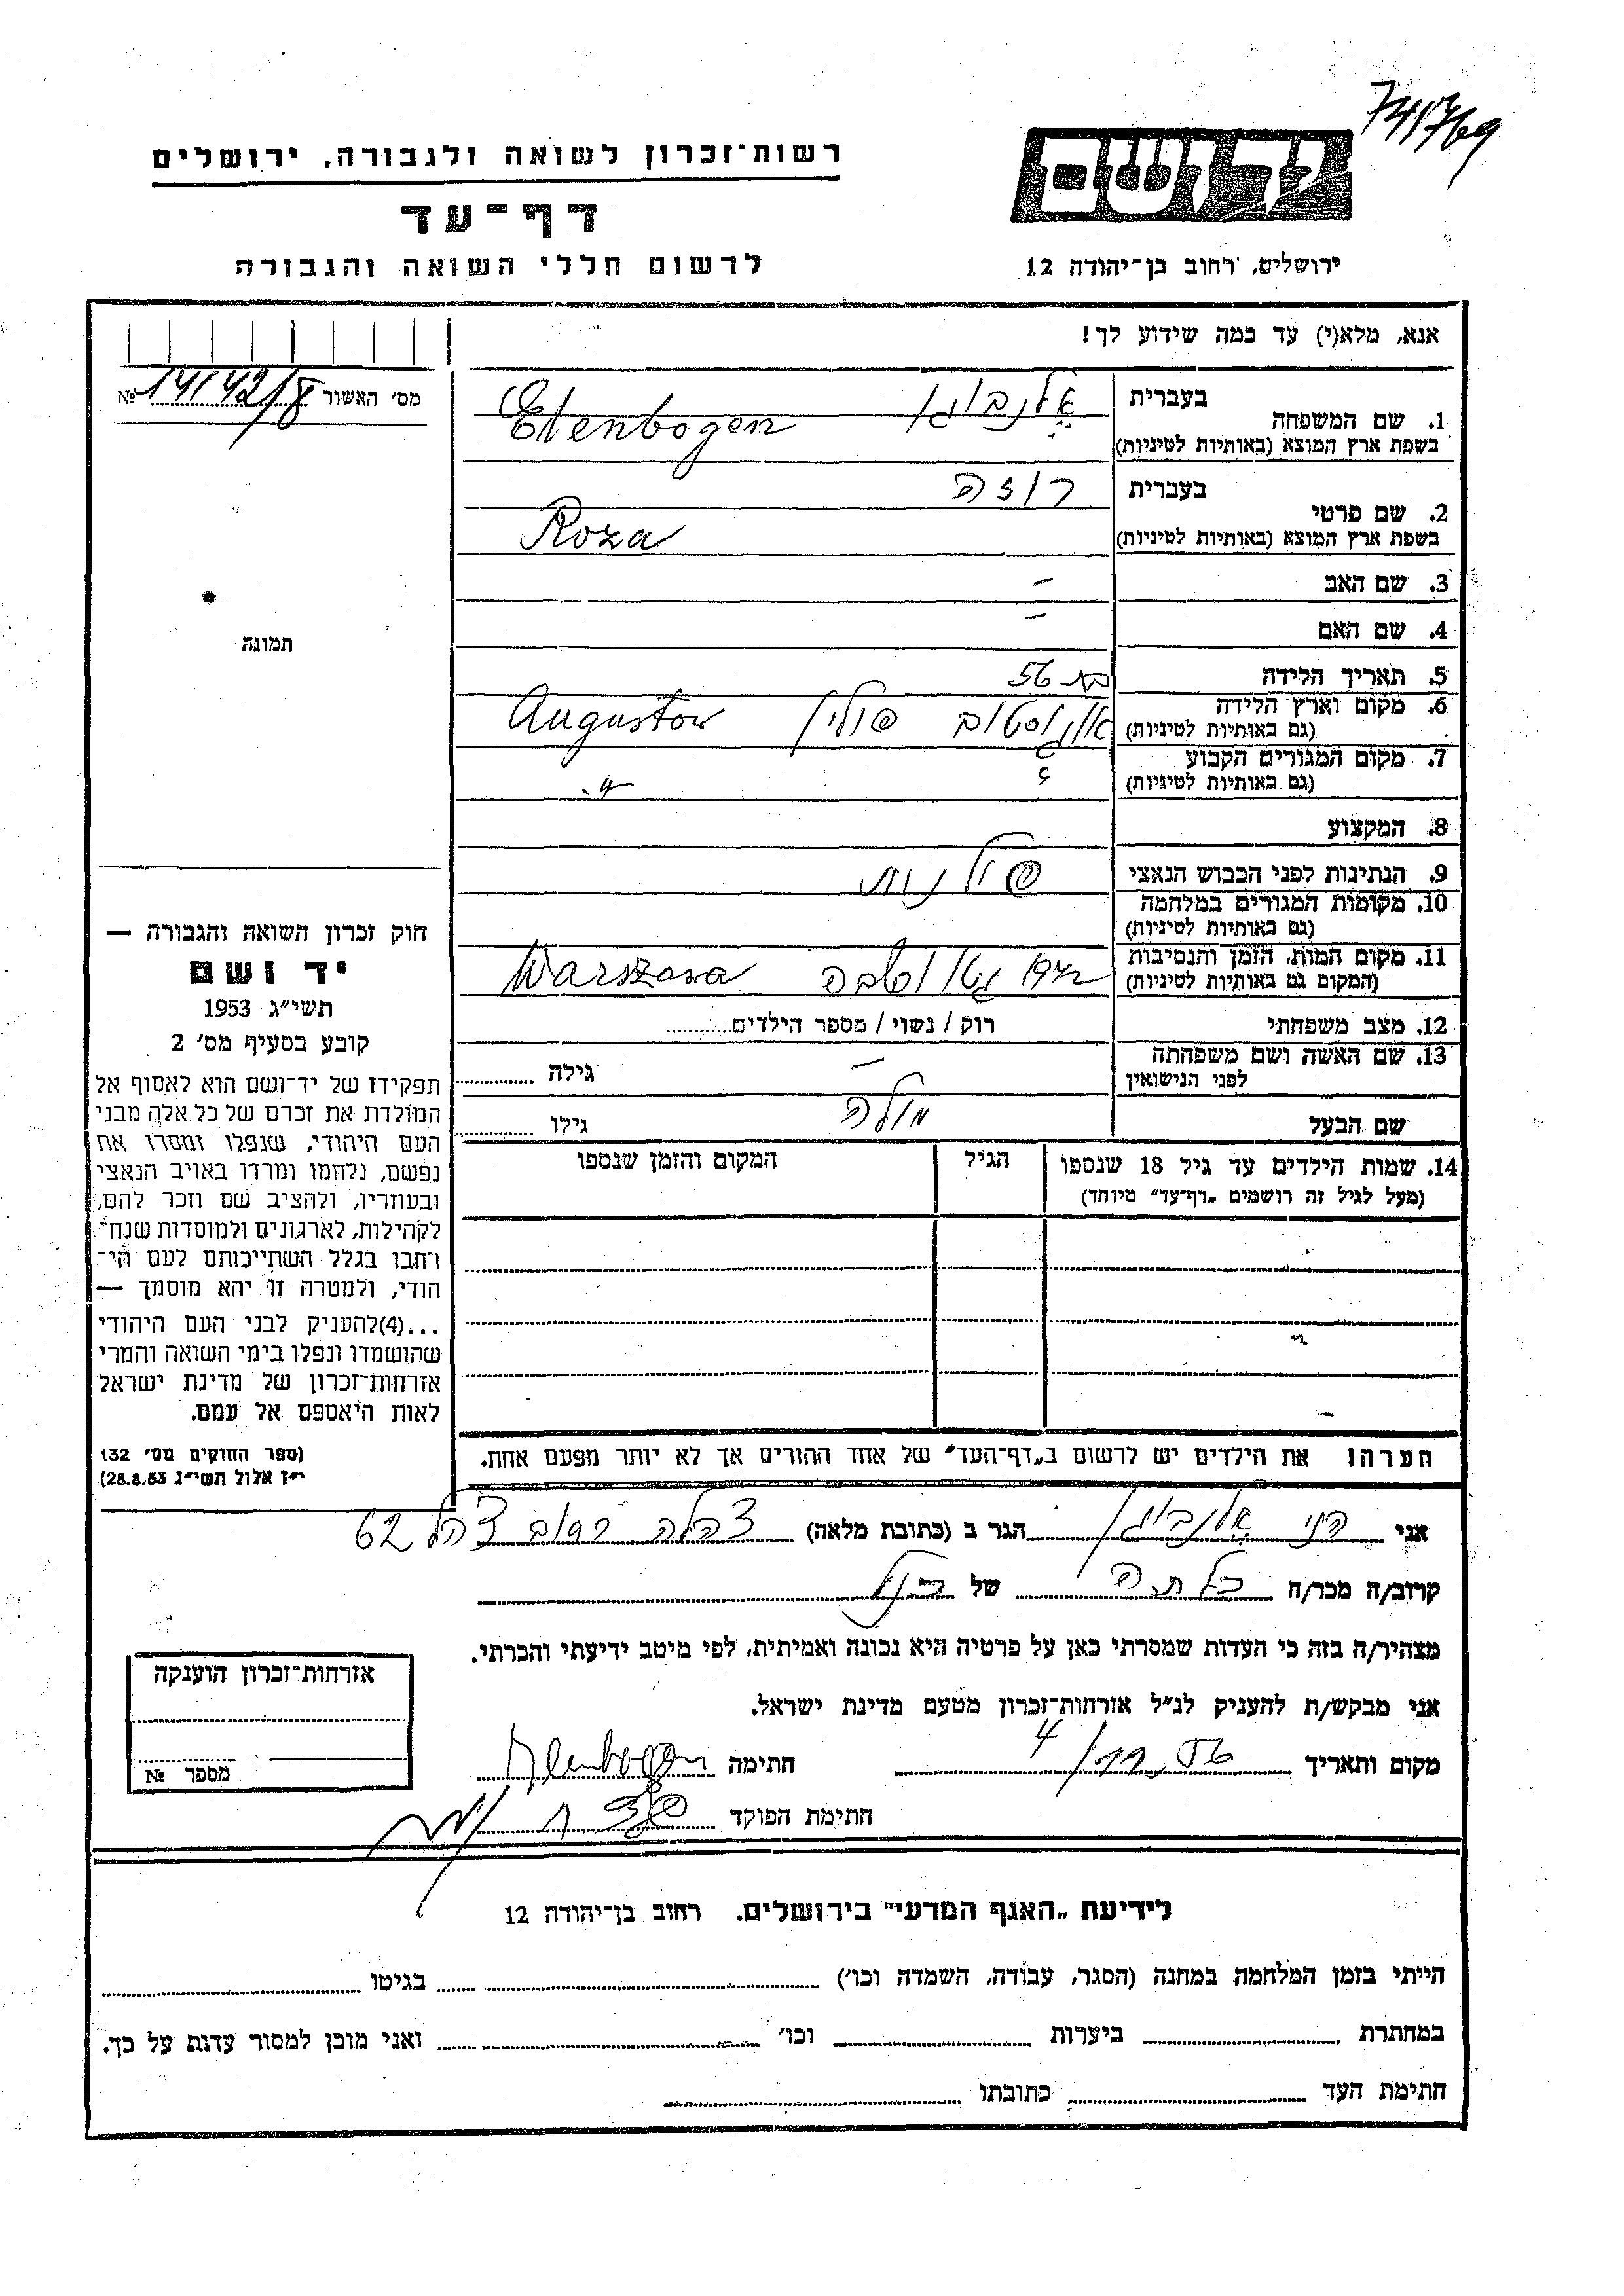 רשות־זכרון לשואה ולגבורה. ירושלים
דף־עד
לרשום חללי השואה והגבורה
יד ושם
ירושלים, רחוב בן־יהודה 12
אנא, מלא(י) עד כמה שידוע לך!
מס׳ האשור № 14142/8
1. שם המשפחה
בעברית אלנבוגן
בשפת ארץ המוצא (באותיות לטיניות) Elenbogen
2. שם פרטי
בעברית רוזה
בשפת ארץ המוצא (באותיות לטיניות) Roza
3. שם האב –
4. שם האם –
5. תאריך הלידה בת 56
6. מקום וארץ הלידה
(גם באותיות לטיניות) אוגוסטוב פולין Augustow
7. מקום המגורים הקבוע
(גם באותיות לטיניות)
8. המקצוע
9. הנתינות לפני הכבוש הנאצי פולנית
10. מקומות המגורים במלחמה
(גם באותיות לטיניות)
11. מקום המות, הזמן והנסיבות
(המקום גם באותיות לטיניות) 1942 גטו Warszawa
12. מצב משפחתי רוק / נשוי / מספר הילדים
13. שם האשה ושם משפחתה
לפני הנישואין – גילה
שם הבעל גילו
14. שמות הילדים עד גיל 18 שנספו
(מעל לגיל זה רושמים „דף־עד״ מיוחד)
הגיל
המקום והזמן שנספו
הערה! את הילדים יש לרשום ב„דף־העד״ של אחד ההורים אך לא יותר מפעם אחת.
תמונה
חוק זכרון השואה והגבורה —
יד ושם
תשי״ג 1953
קובע בסעיף מס׳ 2
תפקידו של יד־ושם הוא לאסוף אל
המולדת את זכרם של כל אלה מבני
העם היהודי, שנפלו ומסרו את
נפשם, נלחמו ומרדו באויב הנאצי
ובעוזריו, ולהציב שם וזכר להם,
לקהילות, לארגונים ולמוסדות שנח־
רחבו בגלל השתייכותם לעם הי־
הודי, ולמטרה זו יהא מוסמך —
...(4)להעניק לבני העם היהודי
שהושמדו ונפלו בימי השואה והמרי
אזרחות־זכרון של מדינת ישראל
לאות היאספם אל עמם.
(ספר החוקים מס׳ 132
י״ז אלול תשי״ג 28.8.53)
אני אלנבוגן הגר ב (כתובת מלאה) צהלה רחוב צהל 62
קרוב/ה מכר/ה כלתה של
מצהיר/ה בזה כי העדות שמסרתי כאן על פרטיה היא נכונה ואמיתית, לפי מיטב ידיעתי והכרתי.
אני מבקש/ת להעניק לנ״ל אזרחות־זכרון מטעם מדינת ישראל.
מקום ותאריך חתימה Elenbogen
חתימת הפוקד
אזרחות־זכרון הוענקה
מספר №
לידיעת „האגף המדעי״ בירושלים. רחוב בן־יהודה 12
הייתי בזמן המלחמה במחנה (הסגר, עבודה, השמדה וכו׳) בגיטו
במחתרת ביערות וכו׳ ואני מוכן למסור עדות על כך.
חתימת העד כתובתו